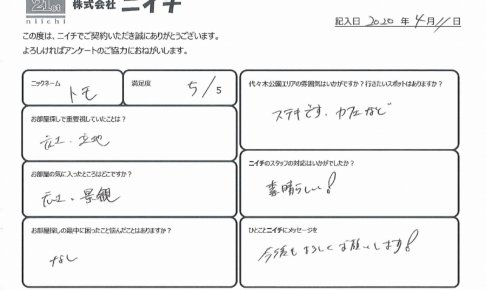 21st
niichi
株式会社 ニイチ
記入日 2020 年 4 月 11 日
この度は、ニイチでご契約いただき誠にありがとうございます。
よろしければアンケートのご協力におねがいします。
ニックネーム
トモ
満足度
5/5
お部屋探しで重要視していたことは？
広さ、立地
お部屋の気に入ったところはどこですか？
広さ、景観
お部屋探しの最中に困ったこと悩んだことはありますか？
なし
代々木公園エリアの雰囲気はいかがですか？行きたいスポットはありますか？
ステキです、カフェなど
ニイチのスタッフの対応はいかがでしたか？
素晴らしい！
ひとことニイチにメッセージを
今後もよろしくお願いします！